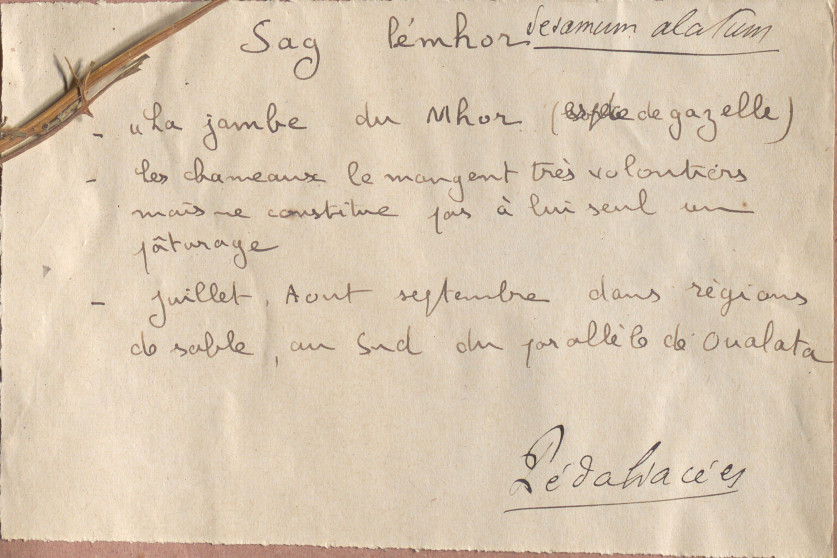 Sag lémhor Sesamum alatum
- "La jambe du Mhor (espèce de gazelle)
- les chameaux le mangent très volontiers
mais ne constitue pas à lui seul un
pâturage
- juillet, Aout septembre dans règions
de sable, au Sud du parallèle de Oualata
Pédaliacées